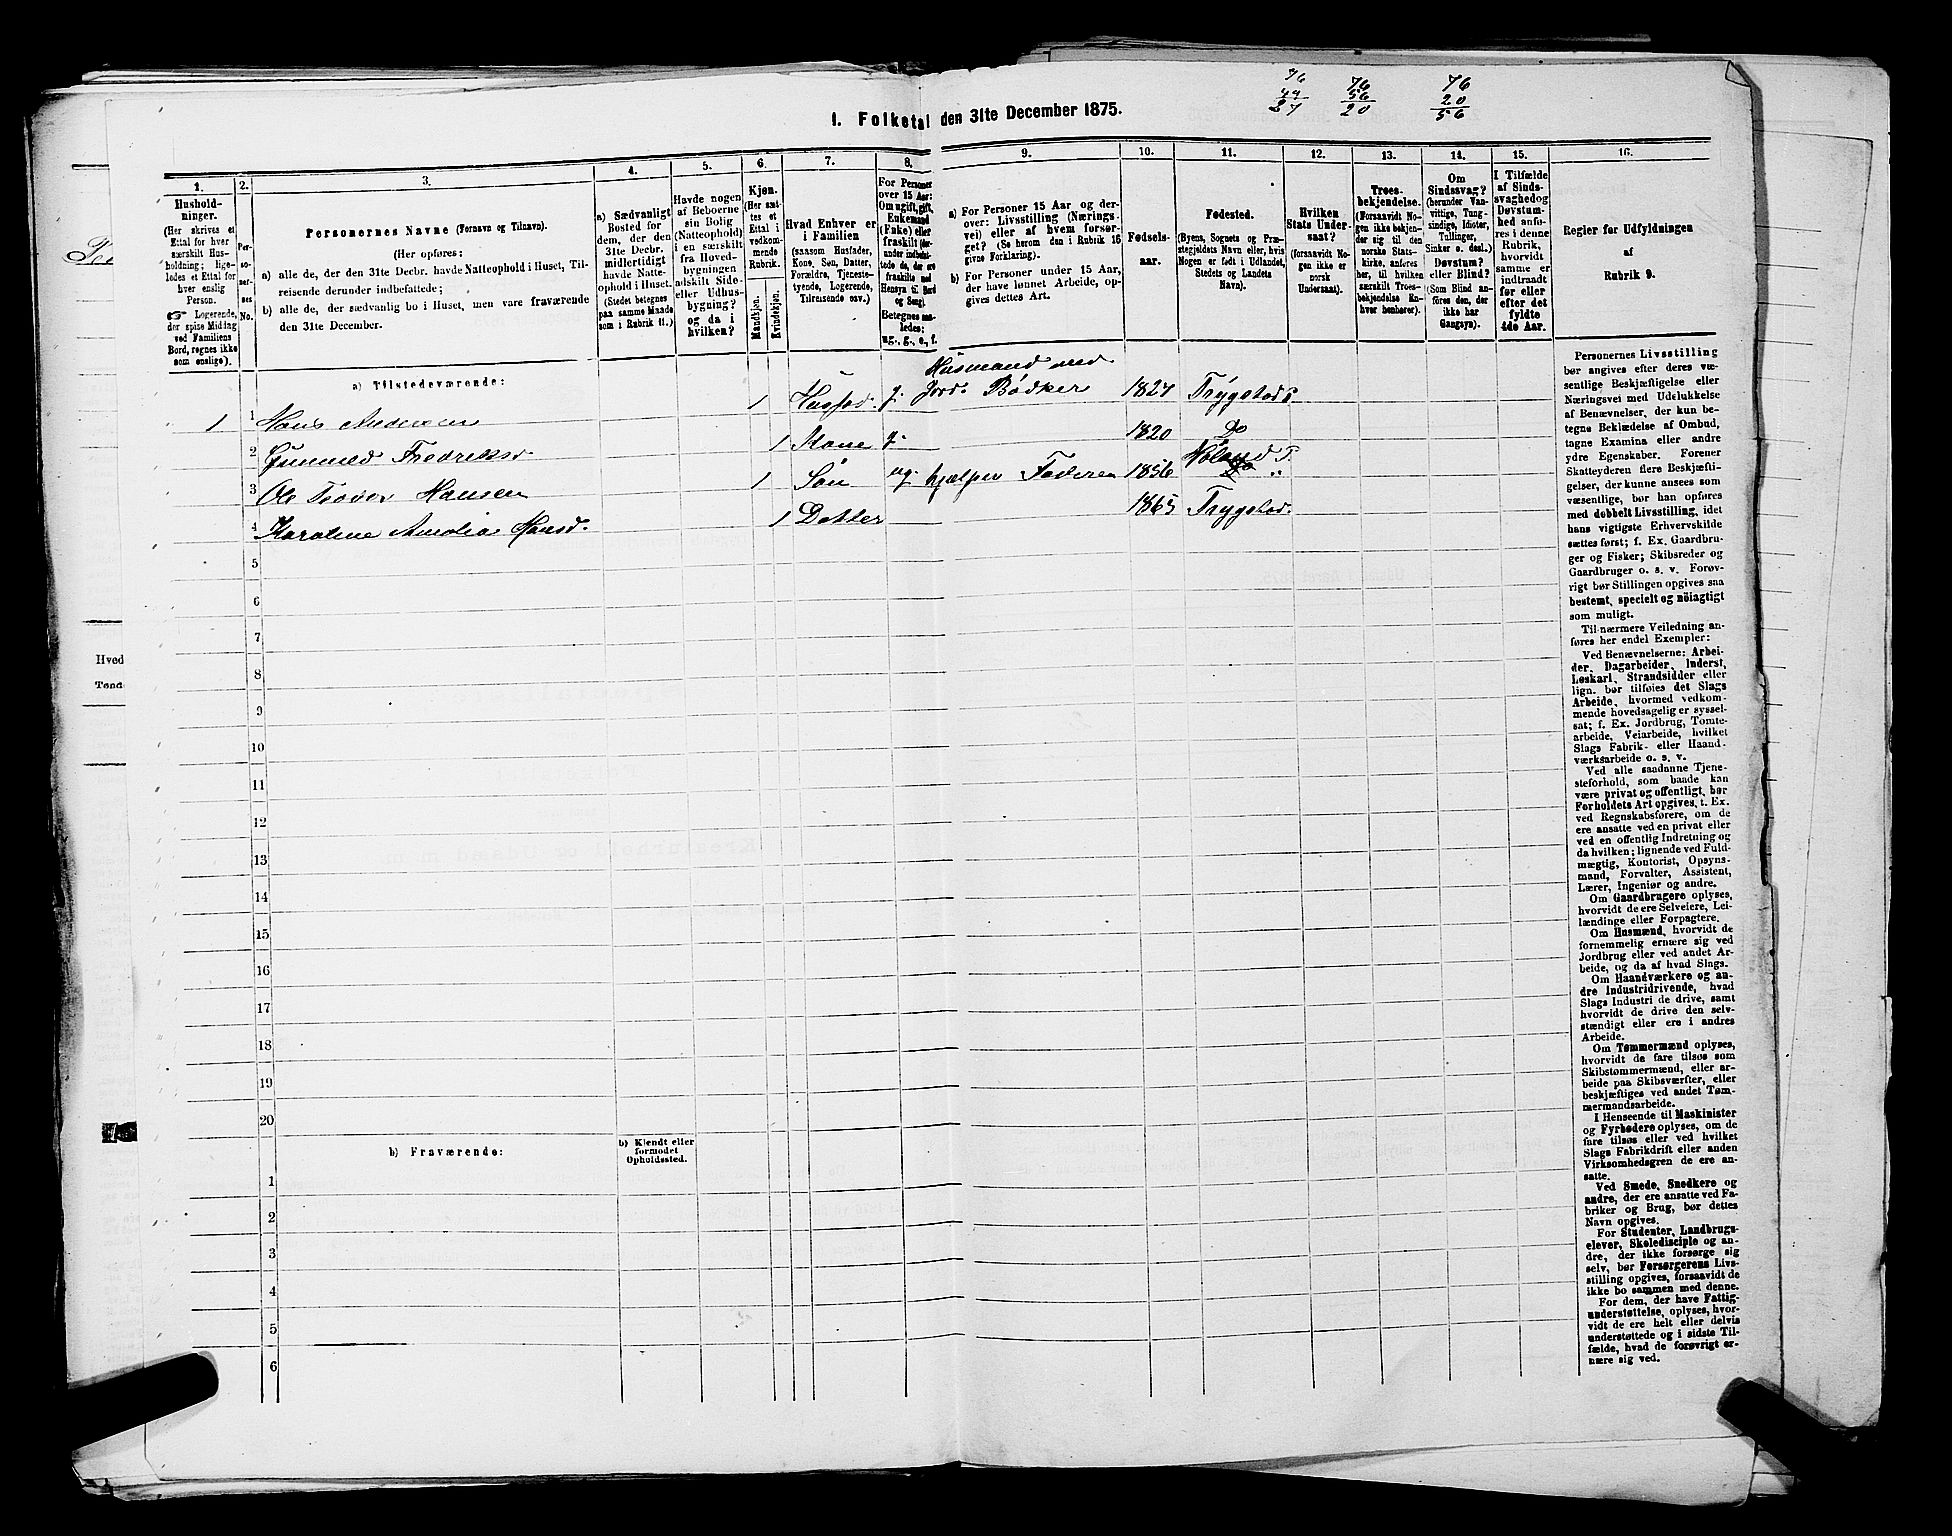 76
44
27
76
56
20
76
20
56
I. Folketal den 31te December 1875.
1.
Hushold-
ninger.
(Her skrives et
Ettal for hver
særskilt Hus-
holdning; lige-
ledes et Ettal for
hver enslig
Person.
☞ Logerende,
der spise Middag
ved Familiens
Bord, regnes ikke
som enslige).
2.
Per-
so-
ner-
nes
No.
3.
Personernes Navne (Fornavn og Tilnavn).
(Her opføres:
a) alle de, der den 31te Decbr. havde Natteophold i Huset, Til-
reisende derunder indbefattede;
b) alle de, der sædvanlig bo i Huset, men vare fraværende
den 31te December.
4.
a) Sædvanligt
Bosted for
dem, der den
31te Decbr.
midlertidigt
havde Natte-
ophold i Huset.
(Stedet betegnes
paa samme Maade
som i Rubrik 11.)
5.
Havde nogen
af Beboerne
sin Bolig
(Natteophold)
i en særskilt
fra Hoved-
bygningen
adskilt Side-
eller Udhus-
bygning?
og da i
hvilken?
6.
Kjøn.
(Her sæt-
tes et
Ettal i
vedkom-
mende
Rubrik.
Mandkjøn.
Kvindekjøn.
7.
Hvad Enhver er
i Familien
(saasom Husfader,
Kone, Søn, Datter,
Forældre, Tjeneste-
tyende, Logerende,
Tilreisende osv.)
8.
For Personer
over 15 Aar:
Om ugift, gift,
Enkemand
(Enke) eller
fraskilt (der-
under indbefat-
tede de, der ere
fraskilte ved
Hensyn til Bord
og Seng)
Betegnes saa-
ledes:
ug., g., e., f.
9.
a) For Personer 15 Aar og der-
over: Livsstilling (Nærings-
vei) eller af hvem forsør-
get? (Se herom den i Rubrik 16
givne Forklaring).
b) For Personer under 15 Aar,
der have lønnet Arbeide, op-
gives dettes Art.
10.
Fødsels-
aar.
11.
Fødested.
(Byens, Sognets og Præ-
stegjeldets Navn eller, hvis
Nogen er født i Udlandet,
Stedets og Landets
Navn).
12.
Hvilken
Stats Under-
saat?
(forsaavidt No-
gen ikke er
norsk
Undersaat).
13.
Troes-
bekjendelse.
(Forsaavidt No-
gen ikke bekjen-
der sig til den
norske Stats-
kirke, anføres
her, til hvilken
særskilt Troes-
bekjendelse En-
hver henhører).
14.
Om
Sindssvag?
(herunder Van-
vittige, Tung-
sindige, Idioter,
Tullinger,
Sinker o. desl.)
Døvstum?
eller Blind?
(Som Blind an-
føres den, der
ikke har
Gangsyn).
15.
I Tilfælde
af Sinds-
svaghed og
Døvstum-
hed anfø-
res i denne
Rubrik,
hvorvidt
samme er
indtraadt
før eller
efter det
fyldte
4de Aar.
16.
Regler for Udfyldningen
af
Rubrik 9.
a) Tilstedeværende:
Husmand med
1 1 Hans Andersen 1 Husfad. g. Jord. Bödker 1827 Trygstad
2 Gunnild Fredriksd 1 Kone g. 1820 Do
3 Ole Hansen 1 Sön ug. hjælper Faderen 1856 Höland P.
4 Karoline Amalia Hansd. 1 Datter 1865 Trygstad.
5
6
7
8
9
10
11
12
13
14
15
16
17
18
19
20
b) Fraværende:
b) Kjendt eller
formodet
Opholdssted.
1
2
3
4
5
6
Personernes Livsstilling
bør angives efter deres væ-
sentlige Beskjæftigelse eller
Næringsvei med Udelukkelse
af Benævnelser, der kun be-
tegne Beklædelse af Ombud,
tagne Examina eller andre
ydre Egenskaber. Forener
Skatteyderen flere Beskjæfti-
gelser, der kunne ansees som
væsentlige, bør han opføres
med dobbelt Livsstilling, idet
hans vigtigste Erhvervskilde
sættes først; f. Ex. Gaardbru-
ger og Fisker; Skibsreder og
Gaardbruger o. s. v. Forøv-
rigt bør Stillingen opgives saa
bestemt, specielt og nöiagtigt
som muligt.
Til nærmere Veiledning an-
føres her endel Exempler:
Ved Benævnelserne: Arbei-
der, Dagarbeider, Inderst,
Løskarl, Strandsidder eller
lign. bør tilføies det Slags
Arbeide, hvormed vedkom-
mende hovedsagelig er syssel-
sat; f. Ex. Jordbrug, Tomte-
arbeide, Veiarbeide, hvilket
Slags Fabrik- eller Haand-
værksarbeide o. s. v.
Ved alle saadanne Tjene-
steforhold, som baade kan
være privat og offentligt, bør
Forholdets Art opgives, t. Ex.
ved Regnskabsførere, om de
ere ansatte ved en privat eller
ved en offentlig Indretning og
da hvilken; lignende ved Fuld-
mægtig, Kontorist, Opsyns-
mand, Forvalter, Assistent,
Lærer, Ingeniør og andre.
Om Gaardbrugere oplyses,
hvorvidt de ere Selveiere, Lei-
lændinge eller Forpagtere.
Om Husmænd, hvorvidt de
fornemmelig ernære sig ved
Jordbrug eller ved andet Ar-
beide, og da af hvad Slags.
Om Haandværkere og an-
dre Industridrivende, hvad
Slags Industri de drive, samt
hvorvidt de drive den selv-
stændigt eller ere i andres
Arbeide.
Om Tømmermænd oplyses,
hvorvidt de fare tilsøs som
Skibstømmermænd, eller ar-
beide paa Skibsværfter, eller
beskjæftiges ved andet Tøm-
mermandsarbeide.
I Henseende til Maskinister
og Fyrbødere oplyses, om de
fare tilsøs eller ved hvilket
Slags Fabrikdrift eller anden
Virksomhedsgren de ere an-
satte.
Ved Smede, Snedkere og
andre, der ere ansatte ved Fa-
briker og Brug, bør dettes
Navn opgives.
For Studenter, Landbrugs-
elever, Skoledisciple og an-
dre, der ikke forsørge sig
selv, bør Forsørgerens Livs-
stilling opgives, forsaavidt de
ikke bo sammen med denne.
For dem, der have Fattig-
understøttelse, oplyses, hvor-
vidt de ere helt eller delvis
understøttede og i sidste Til-
fælde, hvad de forøvrigt er-
nære sig ved.
Hved
Tønd